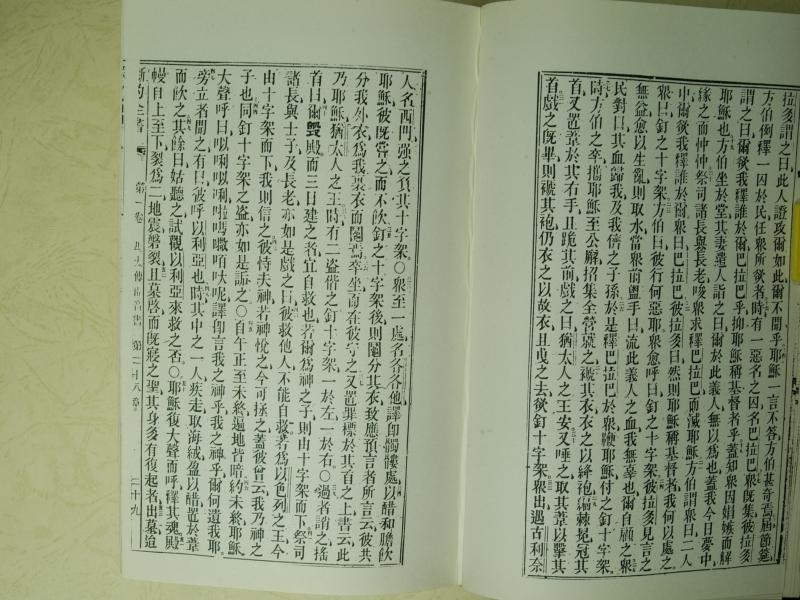 拉多謂之曰此人證攻爾如此爾不聞乎耶穌一言不答方伯甚奇焉屆節筵
方伯例釋一囚於民任眾所欲者時有一惡名之囚名巴拉巴眾既集彼拉多
謂之曰爾欲我釋誰於爾巴拉巴乎抑耶穌稱基督者乎蓋知眾因娼嫉而解
耶穌也方伯坐於堂其妻遣人詣之曰爾於此義人無以為也蓋我今日夢中
緣之而忡忡祭司諸長與長老唆眾求釋巴拉巴而滅耶穌方伯謂眾曰二人
中爾欲我釋誰於爾眾曰巴拉巴彼拉多曰然則耶穌稱基督者我何以處之
眾曰釘之十字架方伯曰彼行何惡耶眾愈呼曰釘之十字架彼拉多見言之
無益愈以生亂則取水當眾前盥手曰流此義人之血我無辜也爾自顧之眾
民對曰其血歸我及我儕之子孫於是釋巴拉巴於眾鞭耶穌付之釘十字架
時方伯之卒攜耶穌至公廨招集全營就之褫其衣衣之以絳袍編棘冕冠其
首又置葦於其右手且跪其前戲之曰猶太人之王安又唾之取其葦以擊其
首戲之既畢則褫其袍仍衣之以故衣且曳之去欲釘十字架眾出遇古利奈
人名西門強之負其十字架○眾至一處名各各他譯即髑髏處以醋和膽飲
耶穌彼既嘗之而不飲釘之十字架後則鬮分其衣致應預言者所言云彼共
分我外衣為我裏衣而鬮焉卒坐而在彼守之又置罪標於其首之上書云此
乃耶穌猶太人之王時有二盜偕之釘十字架一於左一於右○過者誚之搖
首曰爾毀殿而三日建之者宜自救也若爾為神之子則由十字架而下祭司
諸長與士子及長老亦如是戲之曰彼救他人不能自救若為以色列之王今
由十字架而下我則信之彼恃夫神若神悅之今可拯之蓋彼曾云我乃神之
子也同釘十字架之盜亦如是詬之○自午正至未終遍地皆暗約未終耶穌
大聲呼曰以唎以唎啦嗎唨咟大呢譯即言我之神乎我之神乎爾何遺我耶
旁立者聞之有曰彼呼以利亞也時其中之一人疾走取海絨盈以醋置於葦
而飲之其餘曰姑聽之試觀以利亞來救之否○耶穌復大聲而呼釋其魂殿
幔自上至下裂為二地震磐裂且墓啓而既寢之聖其身多有復起者出墓迨
新約全書 第一卷 馬太傳福音書 第二十八章 二十九